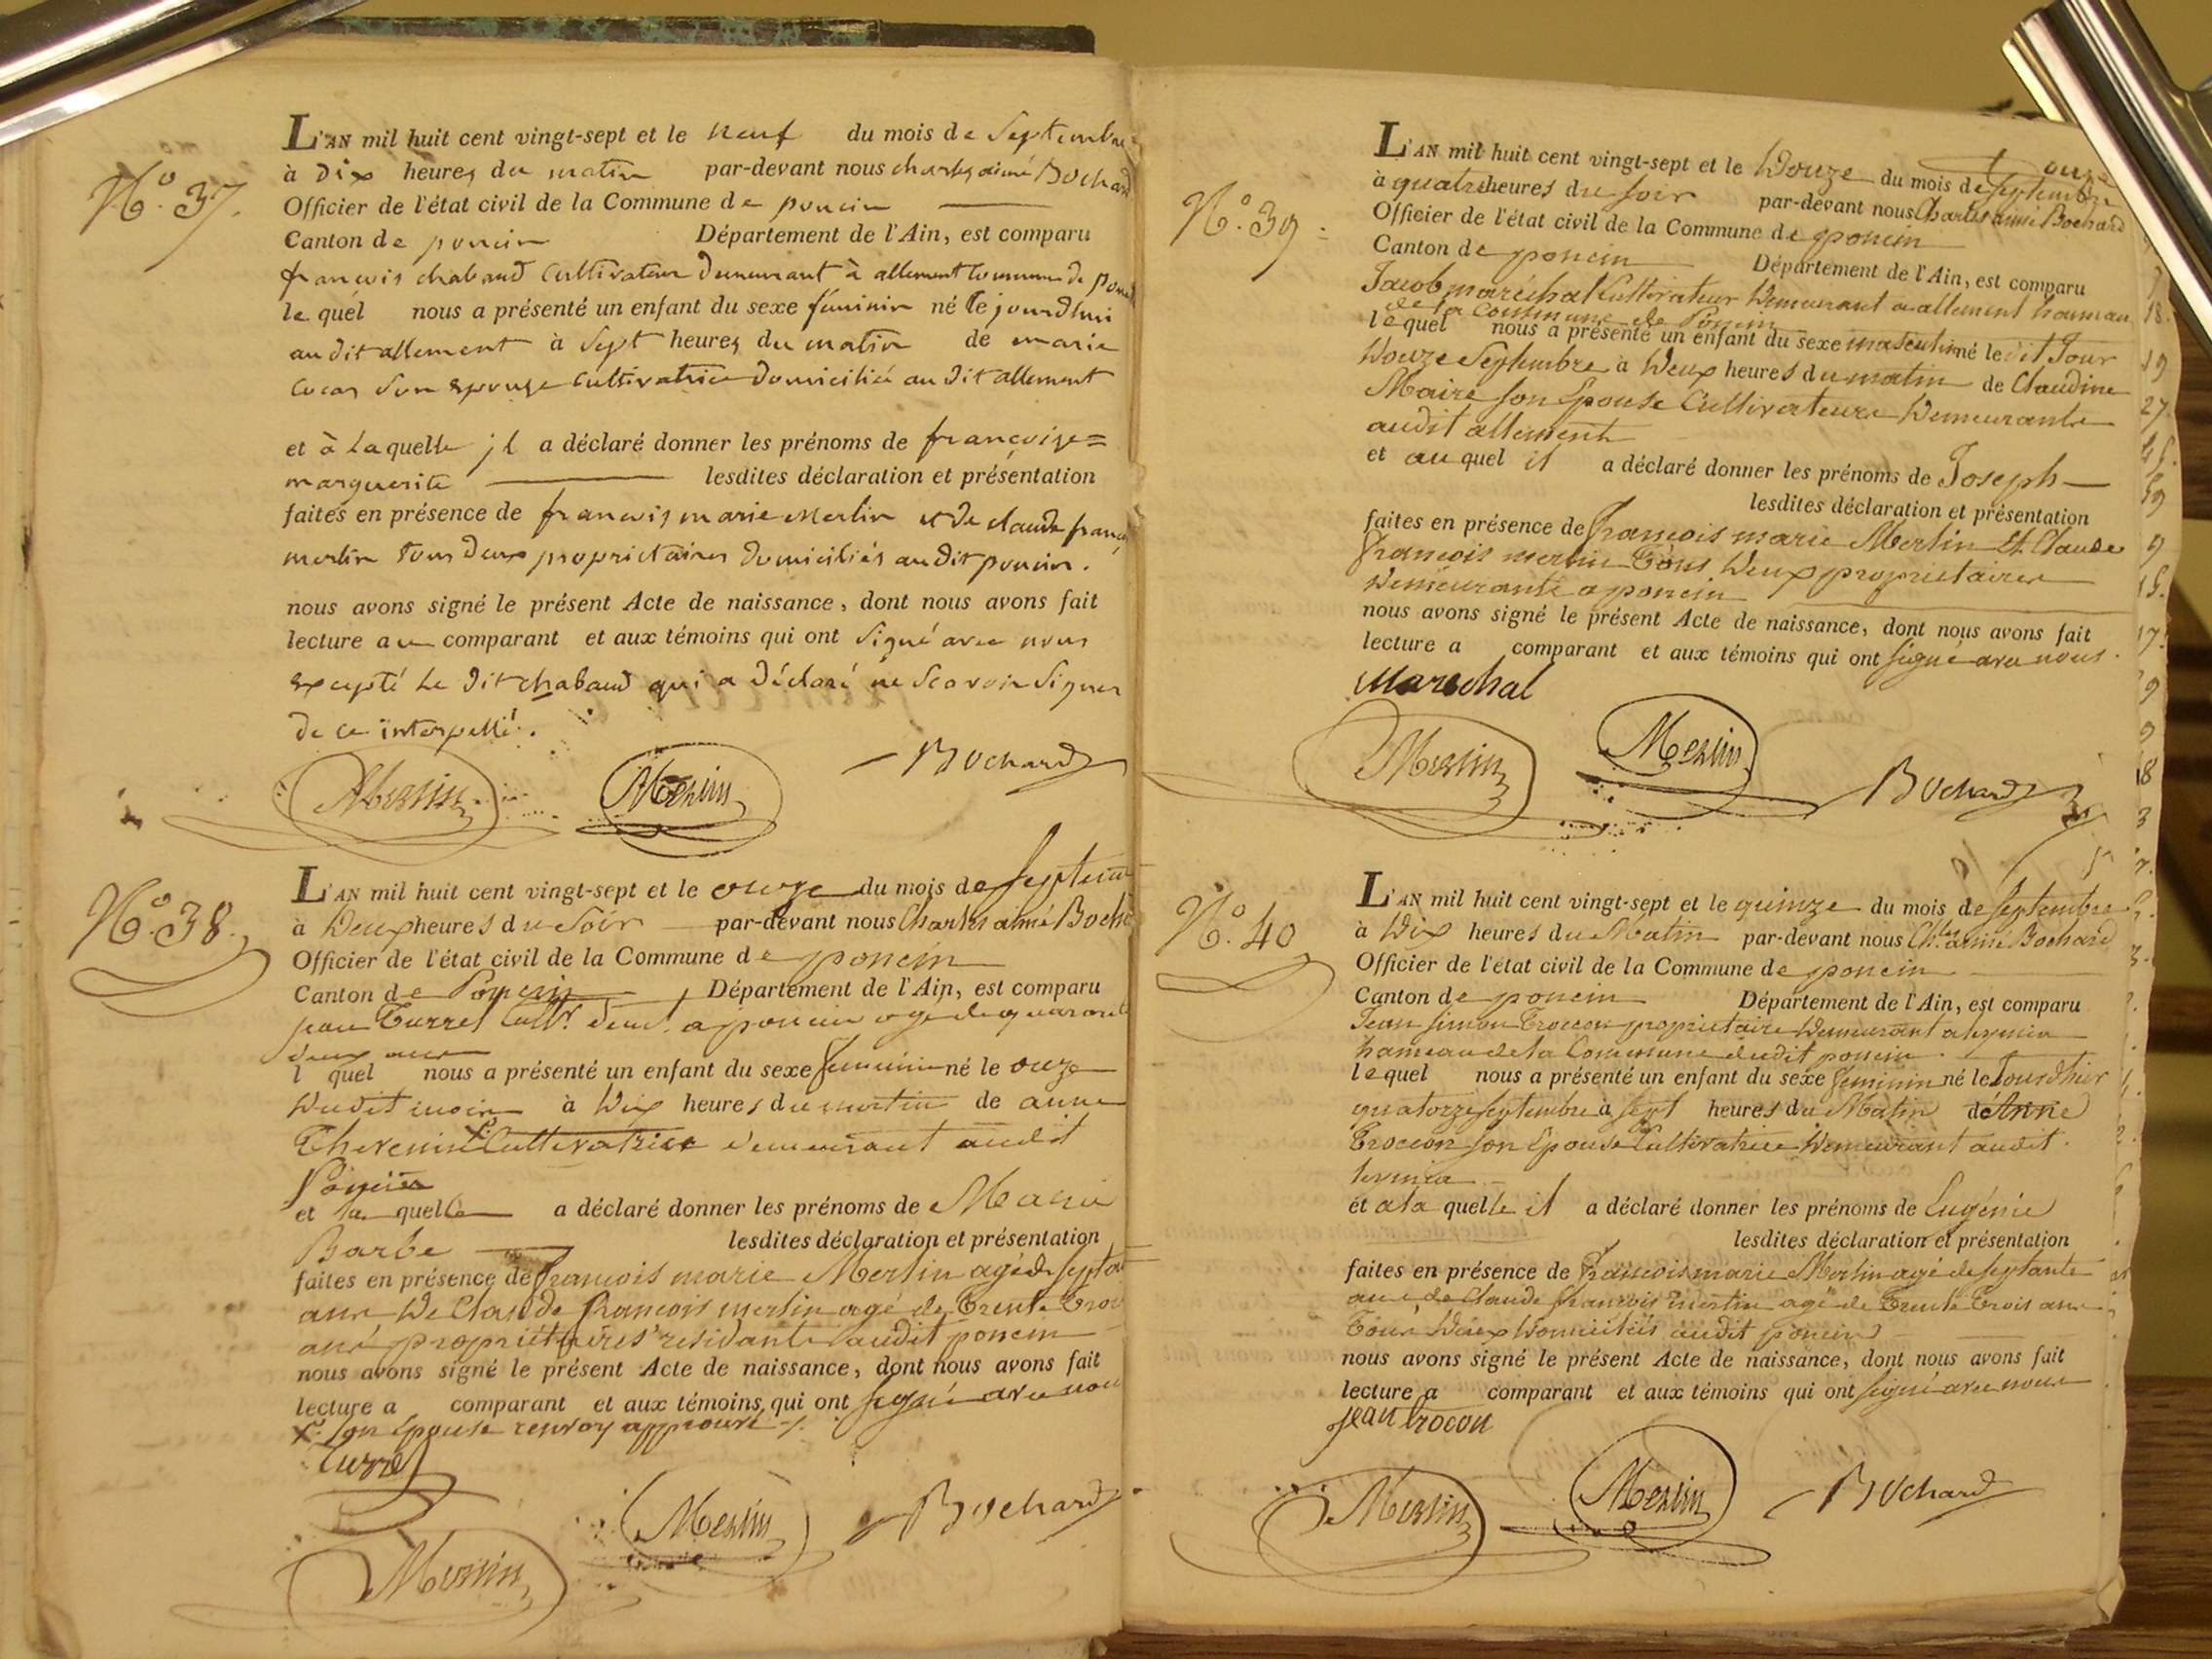 N.º 37.
L'AN mil huit cent vingt-sept et le neuf du mois de Septembre
à Dix heures du matin par-devant nous charles aimé Bochard
Officier de l'état civil de la Commune de poncin
Canton de poncin Département de l'Ain, est comparu
françois chabaud cultivateur demeurant à allement Commune de
le quel nous a présenté un enfant du sexe féminin né le jourdhui
au dit allement à Sept heures du matin de marie
son epouse cultivatrice domiciliée au dit allement
et à laquelle il a déclaré donner les prénoms de françoise=
marguerite lesdites déclaration et présentation
faites en présence de françois marie merlin et de claude
merlin tous deux proprietaires domiciliés au dit poncin.
nous avons signé le présent Acte de naissance, dont nous avons fait
lecture au comparant et aux témoins qui ont signé avec nous
excepté le dit chabaud qui a déclaré ne scavoir signer
de ce interpellé.
Merlin Merlin Bochard
N.º 38.
L'AN mil huit cent vingt-sept et le onze du mois de
à Deux heures du Soir par-devant nous Charles aimé
Officier de l'état civil de la Commune de poncin
Canton de Poncin Département de l'Ain, est comparu
jean Turrel Cult.r a poncin agé de quarante
deux ans
l quel nous a présenté un enfant du sexe feminin né le onze
Dudit mois à Dix heures du matin de anne
Thevenin x. Cultivatrice demeurant audit
Poncin
et la quelle a déclaré donner les prénoms de Marie
Barbe lesdites déclaration et présentation
faites en présence de françois marie Merlin agé de
ans De Claude françois merlin agé de Trente
ans propriétaires residants audit poncin
nous avons signé le présent Acte de naissance, dont nous avons fait
lecture a comparant et aux témoins qui ont signé avec nous
x. son Epouse renvoy approuvé
Turrel
Merlin Merlin Bochard
N.º 39.
L'AN mil huit cent vingt-sept et le Douze du mois de septembre
à quatre heures du soir par-devant nous Charles aimé Bochard
Officier de l'état civil de la Commune de poncin
Canton de poncin Département de l'Ain, est comparu
Jacob maréchal Cultivateur Demeurant a allement hameau
de la Commune de Poncin
le quel nous a présenté un enfant du sexe masculin né le dit Jour
Douze Septembre à Deux heures du matin de Claudine
Maire son Epouse Cultivateure Demeurante
audit allement
et au quel il a déclaré donner les prénoms de Joseph
lesdites déclaration et présentation
faites en présence de françois marie Merlin Et Claude
françois merlin Tous Deux proprietaires
Demeurants a poncin
nous avons signé le présent Acte de naissance, dont nous avons fait
lecture a comparant et aux témoins qui ont signé avec nous.
Marechal
Merlin Merlin Bochard
N.º 40
L'AN mil huit cent vingt-sept et le quinze du mois de septembre
à Dix heures du Matin par-devant nous Ch.les aimé Bochard
Officier de l'état civil de la Commune de poncin
Canton de poncin Département de l'Ain, est comparu
Jean simon Trocon proprietaire Demeurant a
hameau de la Commune dudit poncin
le quel nous a présenté un enfant du sexe feminin né le Jourdhier
quatorze septembre à sept heures du Matin de Anne
Trocon son Epouse Cultivatrice Demeurant audit
et a la quelle il a déclaré donner les prénoms de Eugénie
lesdites déclaration et présentation
faites en présence de françois marie Merlin agé de septante
ans de Claude françois merlin agé de Trente Trois ans
Tous Deux Domiciliés audit poncin
nous avons signé le présent Acte de naissance, dont nous avons fait
lecture a comparant et aux témoins qui ont signé avec nous
jean trocon
Merlin Merlin Bochard